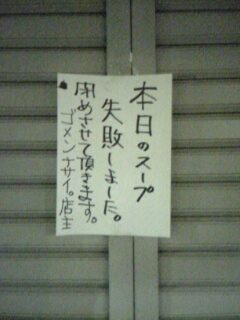 本日のスープ
失敗しました。
閉めさせて頂きます。
ゴメンナサイ。店主